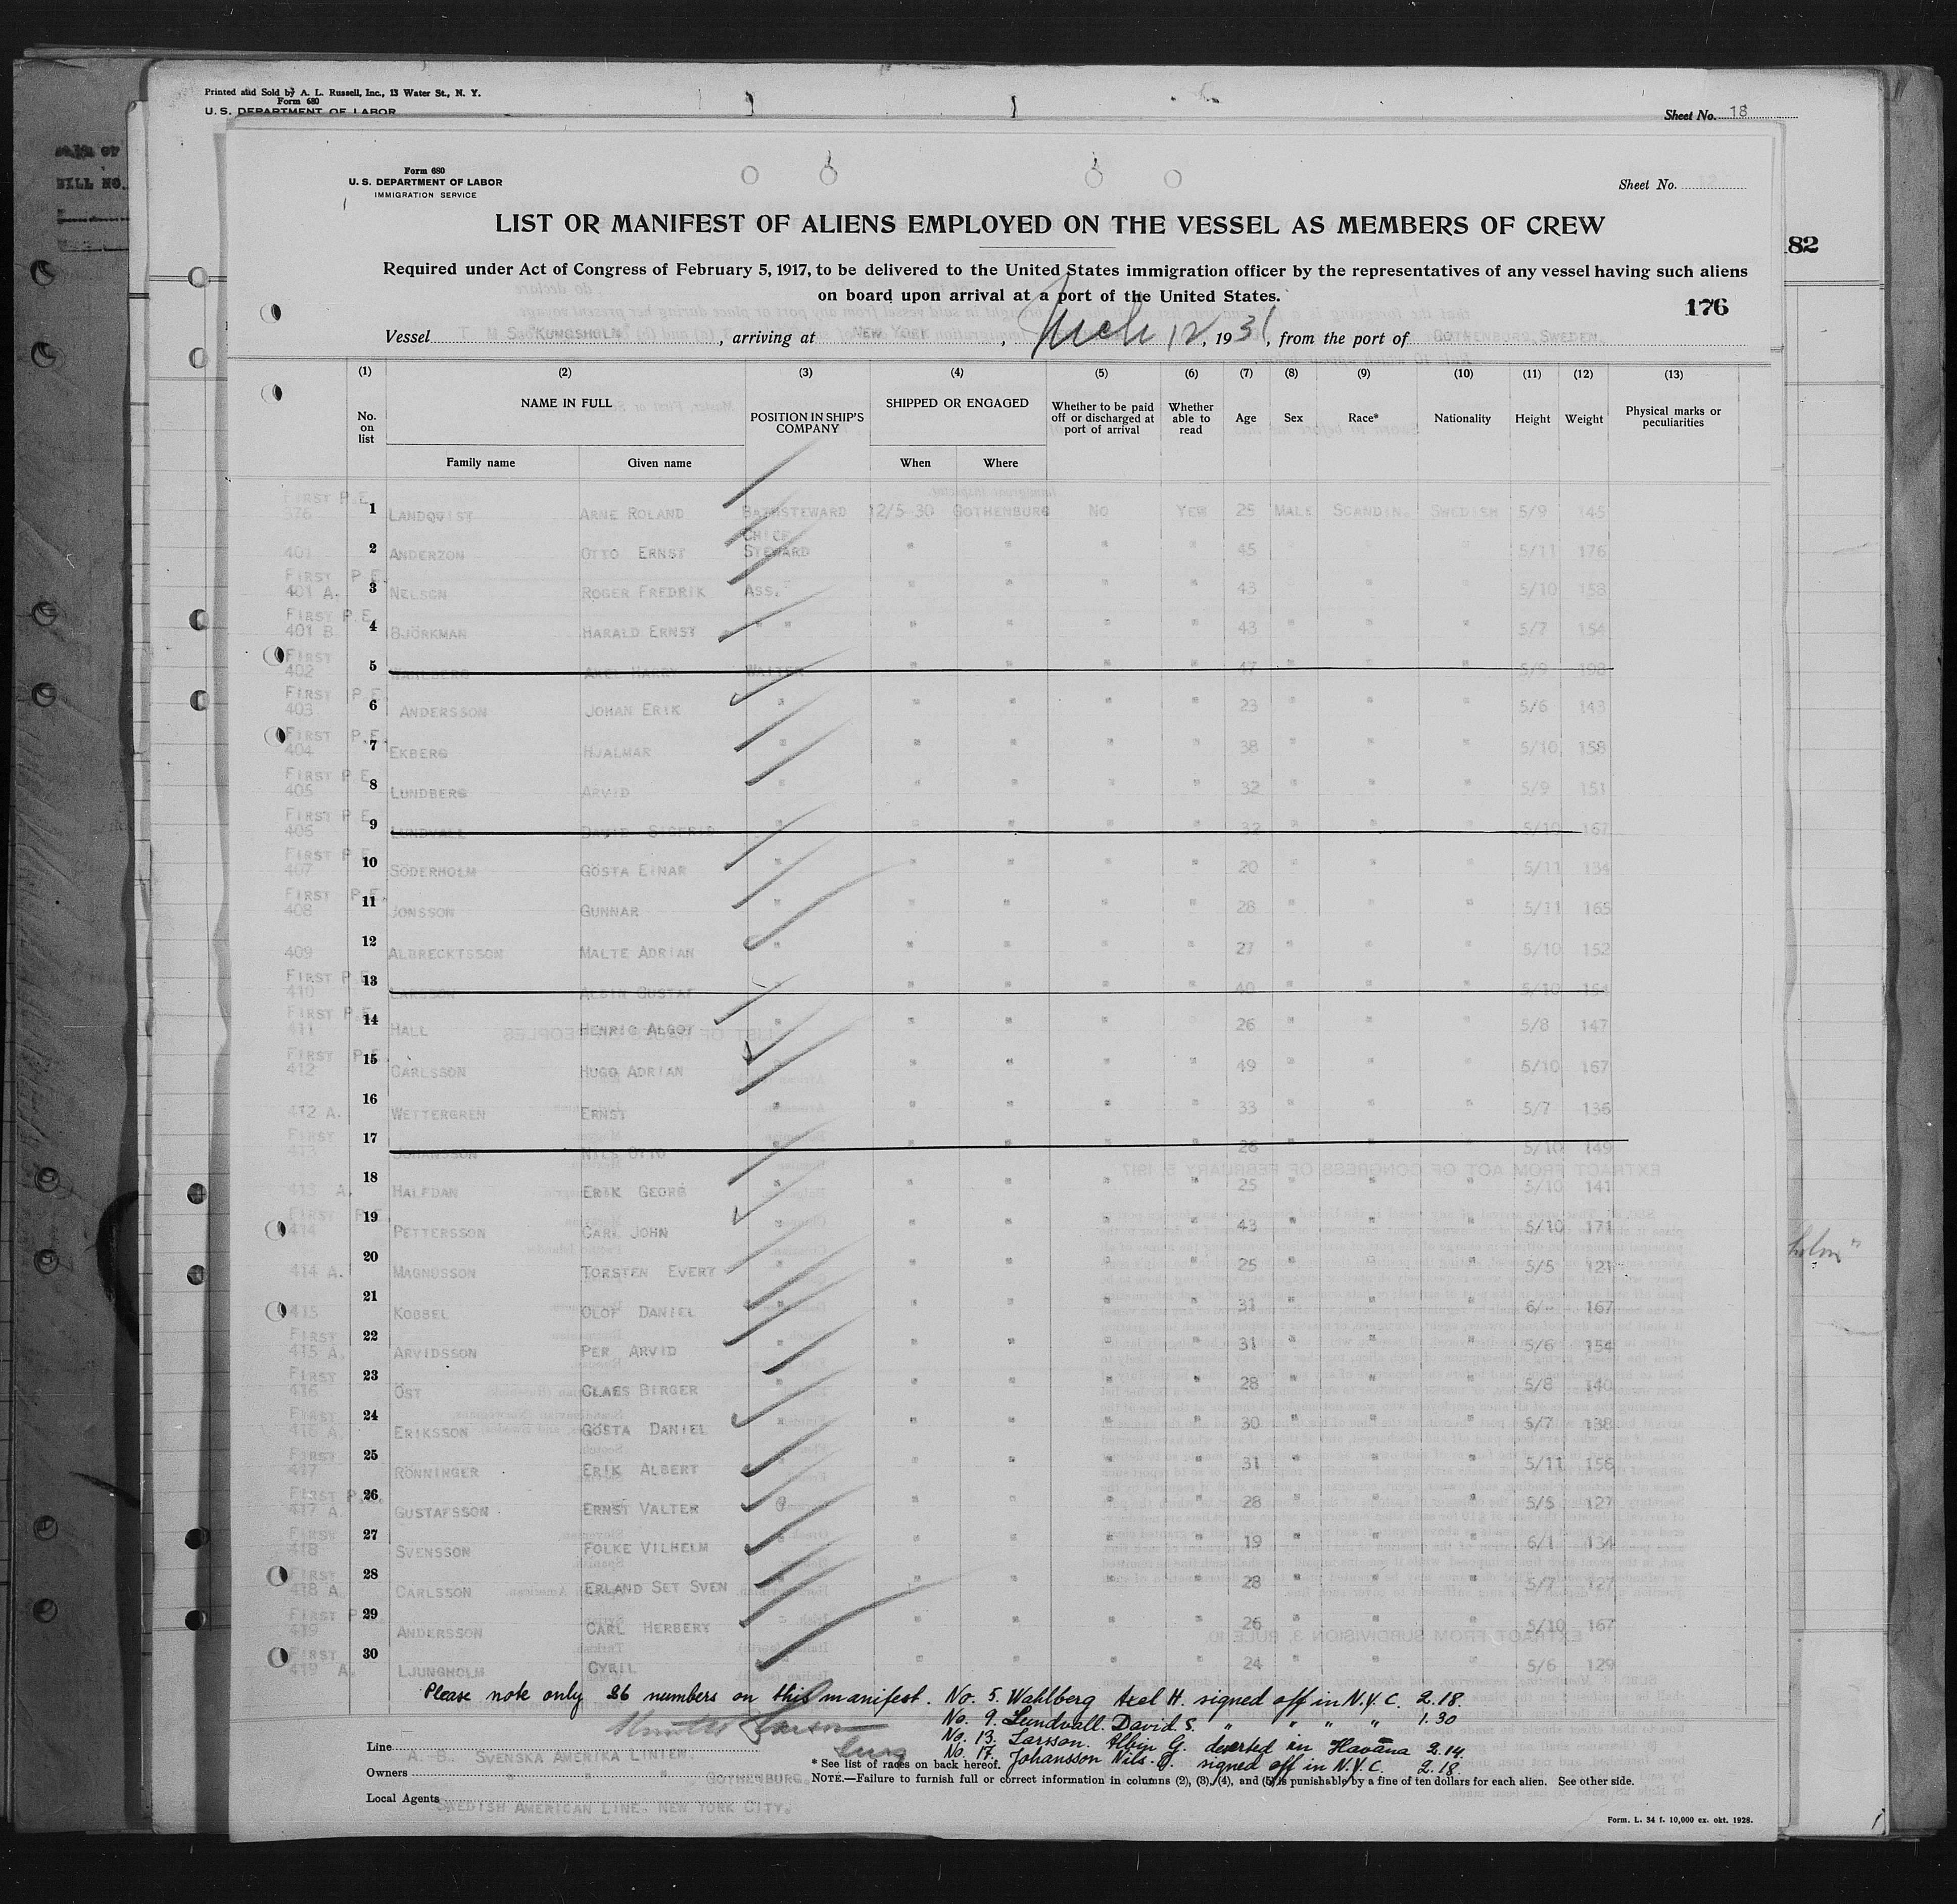 Printed and Sold by A. L. Russell, Inc., 13 Water St., N. Y.
Form 680
U. S. DEPARTMENT OF LABOR
Sheet No. 18
82
Form 680
U. S. DEPARTMENT OF LABOR
IMMIGRATION SERVICE
Sheet No.
LIST OR MANIFEST OF ALIENS EMPLOYED ON THE VESSEL AS MEMBERS OF CREW
Required under Act of Congress of February 5, 1917, to be delivered to the United States immigration officer by the representatives of any vessel having such aliens
on board upon arrival at a port of the United States.
176
Vessel T. M S."KUNGSHOLM" , arriving at NEW YORK , Mch 12, 1931, from the port of GOTHENBURG, SWEDEN.
(1) (2) (3) (4) (5) (6) (7) (8) (9) (10) (11) (12) (13)
No. on list NAME IN FULL POSITION IN SHIP'S COMPANY SHIPPED OR ENGAGED Whether to be paid off or discharged at port of arrival Whether able to read Age Sex Race* Nationality Height Weight Physical marks or peculiarities
Family name Given name When Where
FIRST P.E. 376 1 LANDQVIST ARNE ROLAND BATHSTEWARD 12/5-30 GOTHENBURG NO YEW 25 MALE SCANDIN. SWEDISH 5/9 145
401 2 ANDERZON OTTO ERNST CHIEF STEWARD " " " " 45 " " " 5/11 176
FIRST P.E. 401 A. 3 NELSON ROGER FREDRIK ASS. " " " " " 43 " " " 5/10 158
FIRST P.E. 401 B. 4 BJÖRKMAN HARALD ERNST " " " " " " 43 " " " 5/7 154
FIRST 402 5 WAHLBERG AXEL HARRY WAITER " " " " 47 " " " 5/9 198
FIRST P.E. 403 6 ANDERSSON JOHAN ERIK " " " " " 23 " " " 5/6 143
FIRST P.E. 404 7 EKBERG HJALMAR " " " " " 38 " " " 5/10 158
FIRST P.E. 405 8 LUNDBERG ARVID " " " " " 32 " " " 5/9 151
FIRST P.E. 406 9 LUNDVALL DAVID SIGFRID " " " " " 32 " " " 5/10 167
FIRST P.E. 407 10 SÖDERHOLM GÖSTA EINAR " " " " " 20 " " " 5/11 134
FIRST P.E. 408 11 JONSSON GUNNAR " " " " " 28 " " " 5/11 165
409 12 ALBRECKTSSON MALTE ADRIAN " " " " " 27 " " " 5/10 152
FIRST P.E. 410 13 LARSSON ALBIN GUSTAF " " " " " 40 " " " 5/10 154
FIRST P.E. 411 14 HALL HENRIC ALGOT " " " " 26 " " " 5/8 147
FIRST P.E. 412 15 CARLSSON HUGO ADRIAN " " " " 49 " " " 5/10 167
412 A. 16 WETTERGREN ERNST " " " " " 33 " " " 5/7 136
FIRST 413 17 JOHANSSON NILS OTTO " " " " " 26 " " " 5/10 149
413 A. 18 HALFDAN ERIK GEORG " " " " " 25 " " " 5/10 141
FIRST P.E. 414 19 PETTERSSON CARL JOHN " " " " " 43 " " " 5/10 171
414 A. 20 MAGNUSSON TORSTEN EVERT " " " " " 25 " " " 5/5 121
415 21 KOBBEL OLOF DANIEL " " " " " 31 " " " 6/- 167
FIRST 415 A. 22 ARVIDSSON PER ARVID " " " " " 31 " " " 5/6 154
FIRST 416 23 ÖST CLAES BIRGER " " " " " 28 " " " 5/8 140
FIRST 416 A. 24 ERIKSSON GÖSTA DANIEL " " " " " 30 " " " 5/7 138
FIRST 417 25 RÖNNINGER ERIK ALBERT " " " " " 31 " " " 5/11 156
FIRST P.E. 417 A. 26 GUSTAFSSON ERNST VALTER " " " " " 28 " " " 5/5 127
FIRST 418 27 SVENSSON FOLKE VILHELM " " " " " 19 " " " 6/1 134
FIRST 418 A. 28 CARLSSON ERLAND SET SVEN " " " " 28 " " " 5/7 127
FIRST P.E. 419 29 ANDERSSON CARL HERBERT " " " " " 26 " " " 5/10 167
FIRST 419 A. 30 LJUNGHOLM CYRIL " " " " 24 " " " 5/6 129
Please note only 26 numbers on this manifest. No. 5. Wahlberg Axel H. signed off in N.Y.C. 2.18.
No. 9. Lundvall. David. S. " " " " 1.30
No. 13. Larsson. Albin G. deserted in Havana 2.14.
No. 17. Johansson Nils. O. signed off in N.Y.C. 2.18.
Line A.-B. SVENSKA AMERIKA LINIEN.
* See list of races on back hereof.
Owners " " " GOTHENBURG.
NOTE.—Failure to furnish full or correct information in columns (2), (3), (4), and (5) is punishable by a fine of ten dollars for each alien. See other side.
Local Agents SWEDISH AMERICAN LINE. NEW YORK CITY.
Form. L. 34 f. 10,000 ex. okt. 1928.